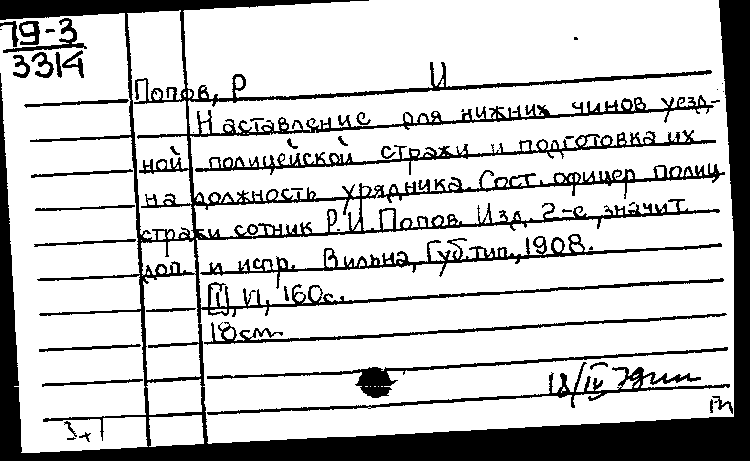 79-3
3314
Попов, Р И
Наставление для нижних чинов уезд-
ной полицейской стражи и подготовка их
на должность урядника. Сост. офицер полиц
стражи сотник Р.И. Попов. Изд. 2-е, значит
доп. и испр. Вильна, Губ. тип., 1908.
[I], VI, 160с.
18см.
18/IV
3+1